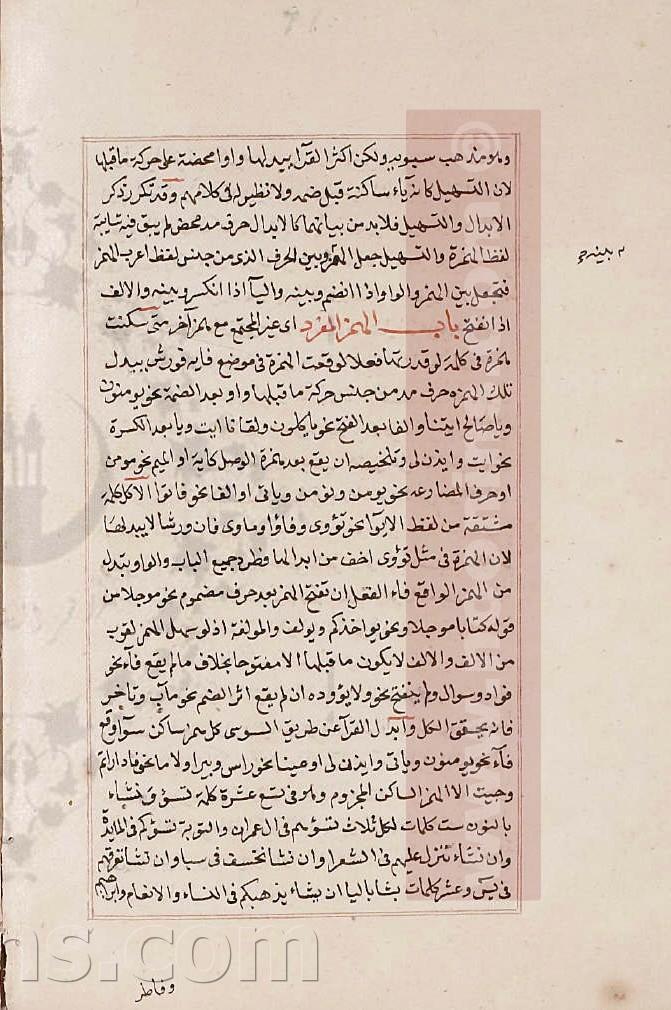 وهو مذهب سيبويه ولكن اكثر القرآ يبدلها واوا محضة على حركة ما قبلها
لان التسهيل كانه يآء ساكنة قبل ضمه ولا نظير له فى كلامهم وقد تكرر ذكر
الابدال والتسهيل فلا بد من بيانهما كالابدال حرف مد محض لم يبق فيه شايبة
لفظ الهمزة والتسهيل جعل الهمز وبين الحرف الذى من جنس لفظ اعرب الهمز
بينه
فتجعل بين الهمز والواو اذا انضم وبينه واليآ اذا انكسر وبينه والالف
اذا انفتح باب الهمز المفرد اى غير المجتمع مع همز آخر متى سكنت
همزة فى كلمة لو قدرتها فعلا لوقعت الهمزة فى موضع فايه فورش يبدل
تلك الهمزه حرف مد من جنس حركة ما قبلها واو بعد الضمة نحو يومنون
ويا صالح ايتنا والفا بعد الفتح نحو ياكلون ولقانا ايت ويا بعد الكسرة
نحو ايت وايذن لى وتلخيصه ان يقع بعد همزة الوصل كاية او الميم نحو مومن
او حرف المضارعه نحو يومن ونومن وياتى او الفا نحو فاتوا الا كل كلمة
مشتقة من لفظ الايوآ نحو تؤوى وفاؤا وماوى فان ورشا لا يبدلها
لان الهمزة فى مثل تؤوى اخف من ابدالها فطرد جميع الباب والواو تبدل
من الهمز الواقع فاء الفعل ان تفتح الهمز بعد حرف مضموم نحو موجلا من
قوله كتابا موجلا ونحو يواخذكم ويولف والمولفة اذ لو سهل الهمز لقرب
من الالف والالف لا يكون ما قبلها الا مفتوحا بخلاف ما لم يقع فآء نحو
فواد وسوال ولم ينفتح نحو ولا يؤوده ان لم يقع اثر الضم نحو مآب وتاخر
فانه يحقق الكل وابدل القرآ عن طريق السوسى كل همز ساكن سوآ وقع
فآء نحو يومنون وياتى وايذن لى او عينا نحو راس وبير او لاما نحو فاداراتم
وجيت الا الهمز الساكن المجزوم وهو فى تسع عشرة كلمة تسؤ ونشاء
بالنون ست كلمات لكل ثلاث تسؤهم فى ال عمران والتوبة تسؤكم فى المايدة
وان نشاء ننزل عليهم فى الشعرا وان نشا نخسف فى سبا وان نشا نغرقهم
فى يس وعشر كلمات يشا باليا ان يشاء يذهبكم فى النساء والانعام وابراهيم
وفاطر
ns.com